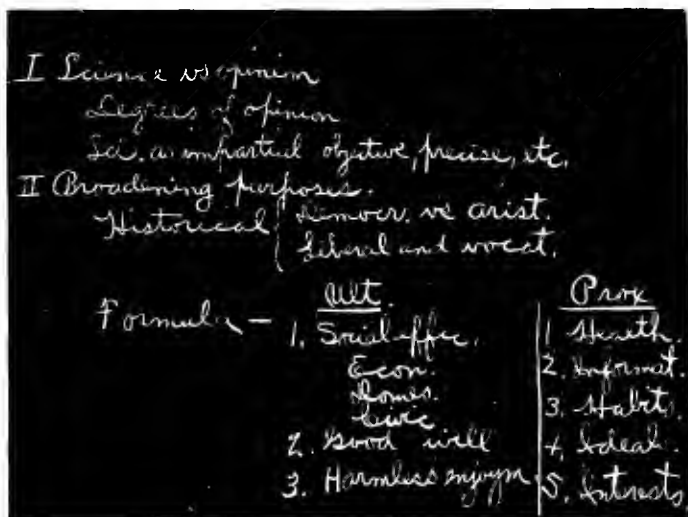 I Science vs opinion
Degrees of opinion
Sci. as impartial objective, precise, etc.
II Broadening purposes.
Historical { Democr. vs arist.
Liberal and vocat.
Formula — Ult.
1. Social effic.
Econ.
Domes.
Civic
2. Good will
3. Harmless enjoym.
Prox
1 Health.
2. Informat.
3. Habits.
4. Ideals.
5. Interests